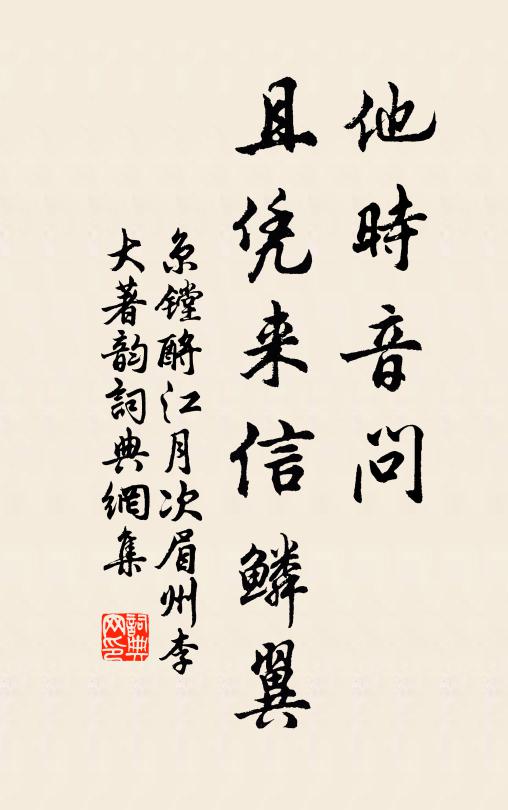 他時音問
且凭来信鱗翼
京镗酹江月次眉州李
大著韵詞典網集
詞典
网印